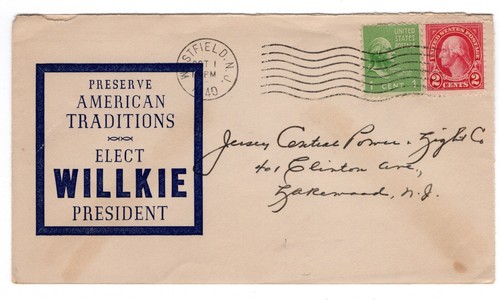 PRESERVE
AMERICAN
TRADITIONS
ELECT
WILLKIE
PRESIDENT
WESTFIELD, N.J.
OCT 1
PM
1940
UNITED STATES
POSTAGE
1 CENT 1
UNITED STATES POSTAGE
2 CENTS 2
Jersey Central Power & Light Co
401 Clinton Ave,
Lakewood, N.J.